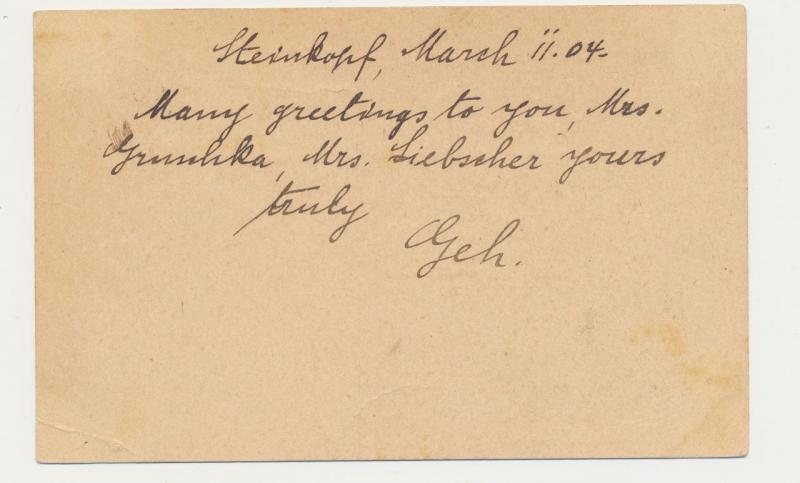 Steinkopf, March 11.04.
Many greetings to you, Mrs.
Gruschka, Mrs. Liebscher yours
truly
Geh.